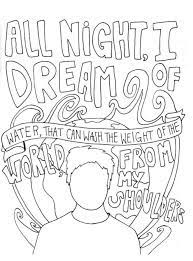 ALL NIGHT, I
DREAM OF
WATER, THAT CAN WASH THE WEIGHT OF THE
WORLD, FROM
MY
SHOULDER